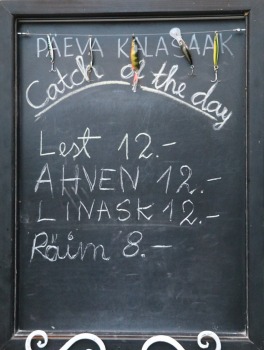 PÄEVA KALASAAK
Catch of the day
Lest 12.-
AHVEN 12.-
LINASK 12.-
Räim 8.-